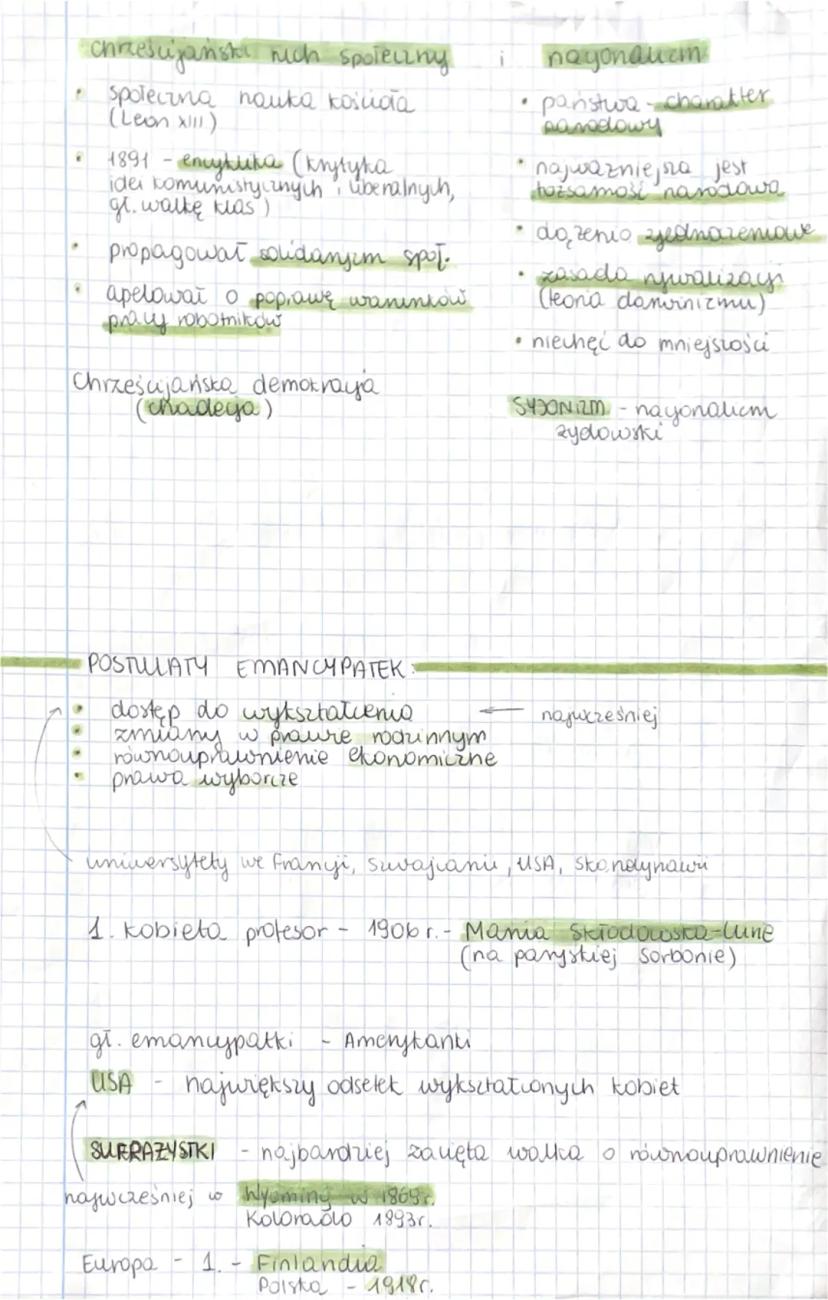 chrześcijański ruch społeczny i nacjonalizm
• społeczna nauka kościoła
(Leon XIII)
• 1891 - encyklika (krytyka
idei komunistycznych i liberalnych,
gł. walkę klas)
• propagował solidaryzm społ.
• apelował o poprawę warunków
pracy robotników
Chrześcijańska demokracja
(chadecja)
• państwa - charakter
narodowy
• najważniejsza jest
tożsamość narodowa
• dążenia zjednoczeniowe
• zasada rywalizacji
(teoria darwinizmu)
• niechęć do mniejszości
SYJONIZM - nacjonalizm
żydowski
POSTULATY EMANCYPATEK:
• dostęp do wykształcenia ← najwcześniej
• zmiany w prawie rodzinnym
• równouprawnienie ekonomiczne
• prawa wyborcze
uniwersytety we Francji, Szwajcarii, USA, Skandynawii
1. kobieta profesor - 1906 r. - Maria Skłodowska-Curie
(na paryskiej Sorbonie)
gł. emancypatki - Amerykanki
USA - największy odsetek wykształconych kobiet
SUFRAŻYSTKI - najbardziej zacięta walka o równouprawnienie
najwcześniej w Wyoming w 1869r.
Kolorado 1893r.
Europa - 1. - Finlandia
Polska - 1918r.